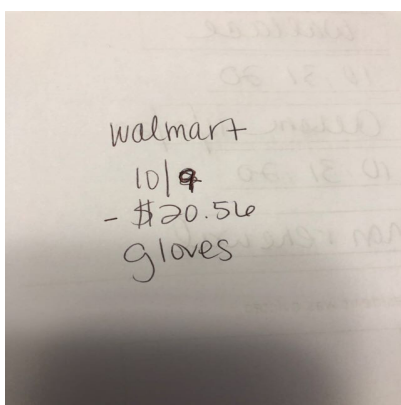 walmart
10/9
- $20.56
gloves